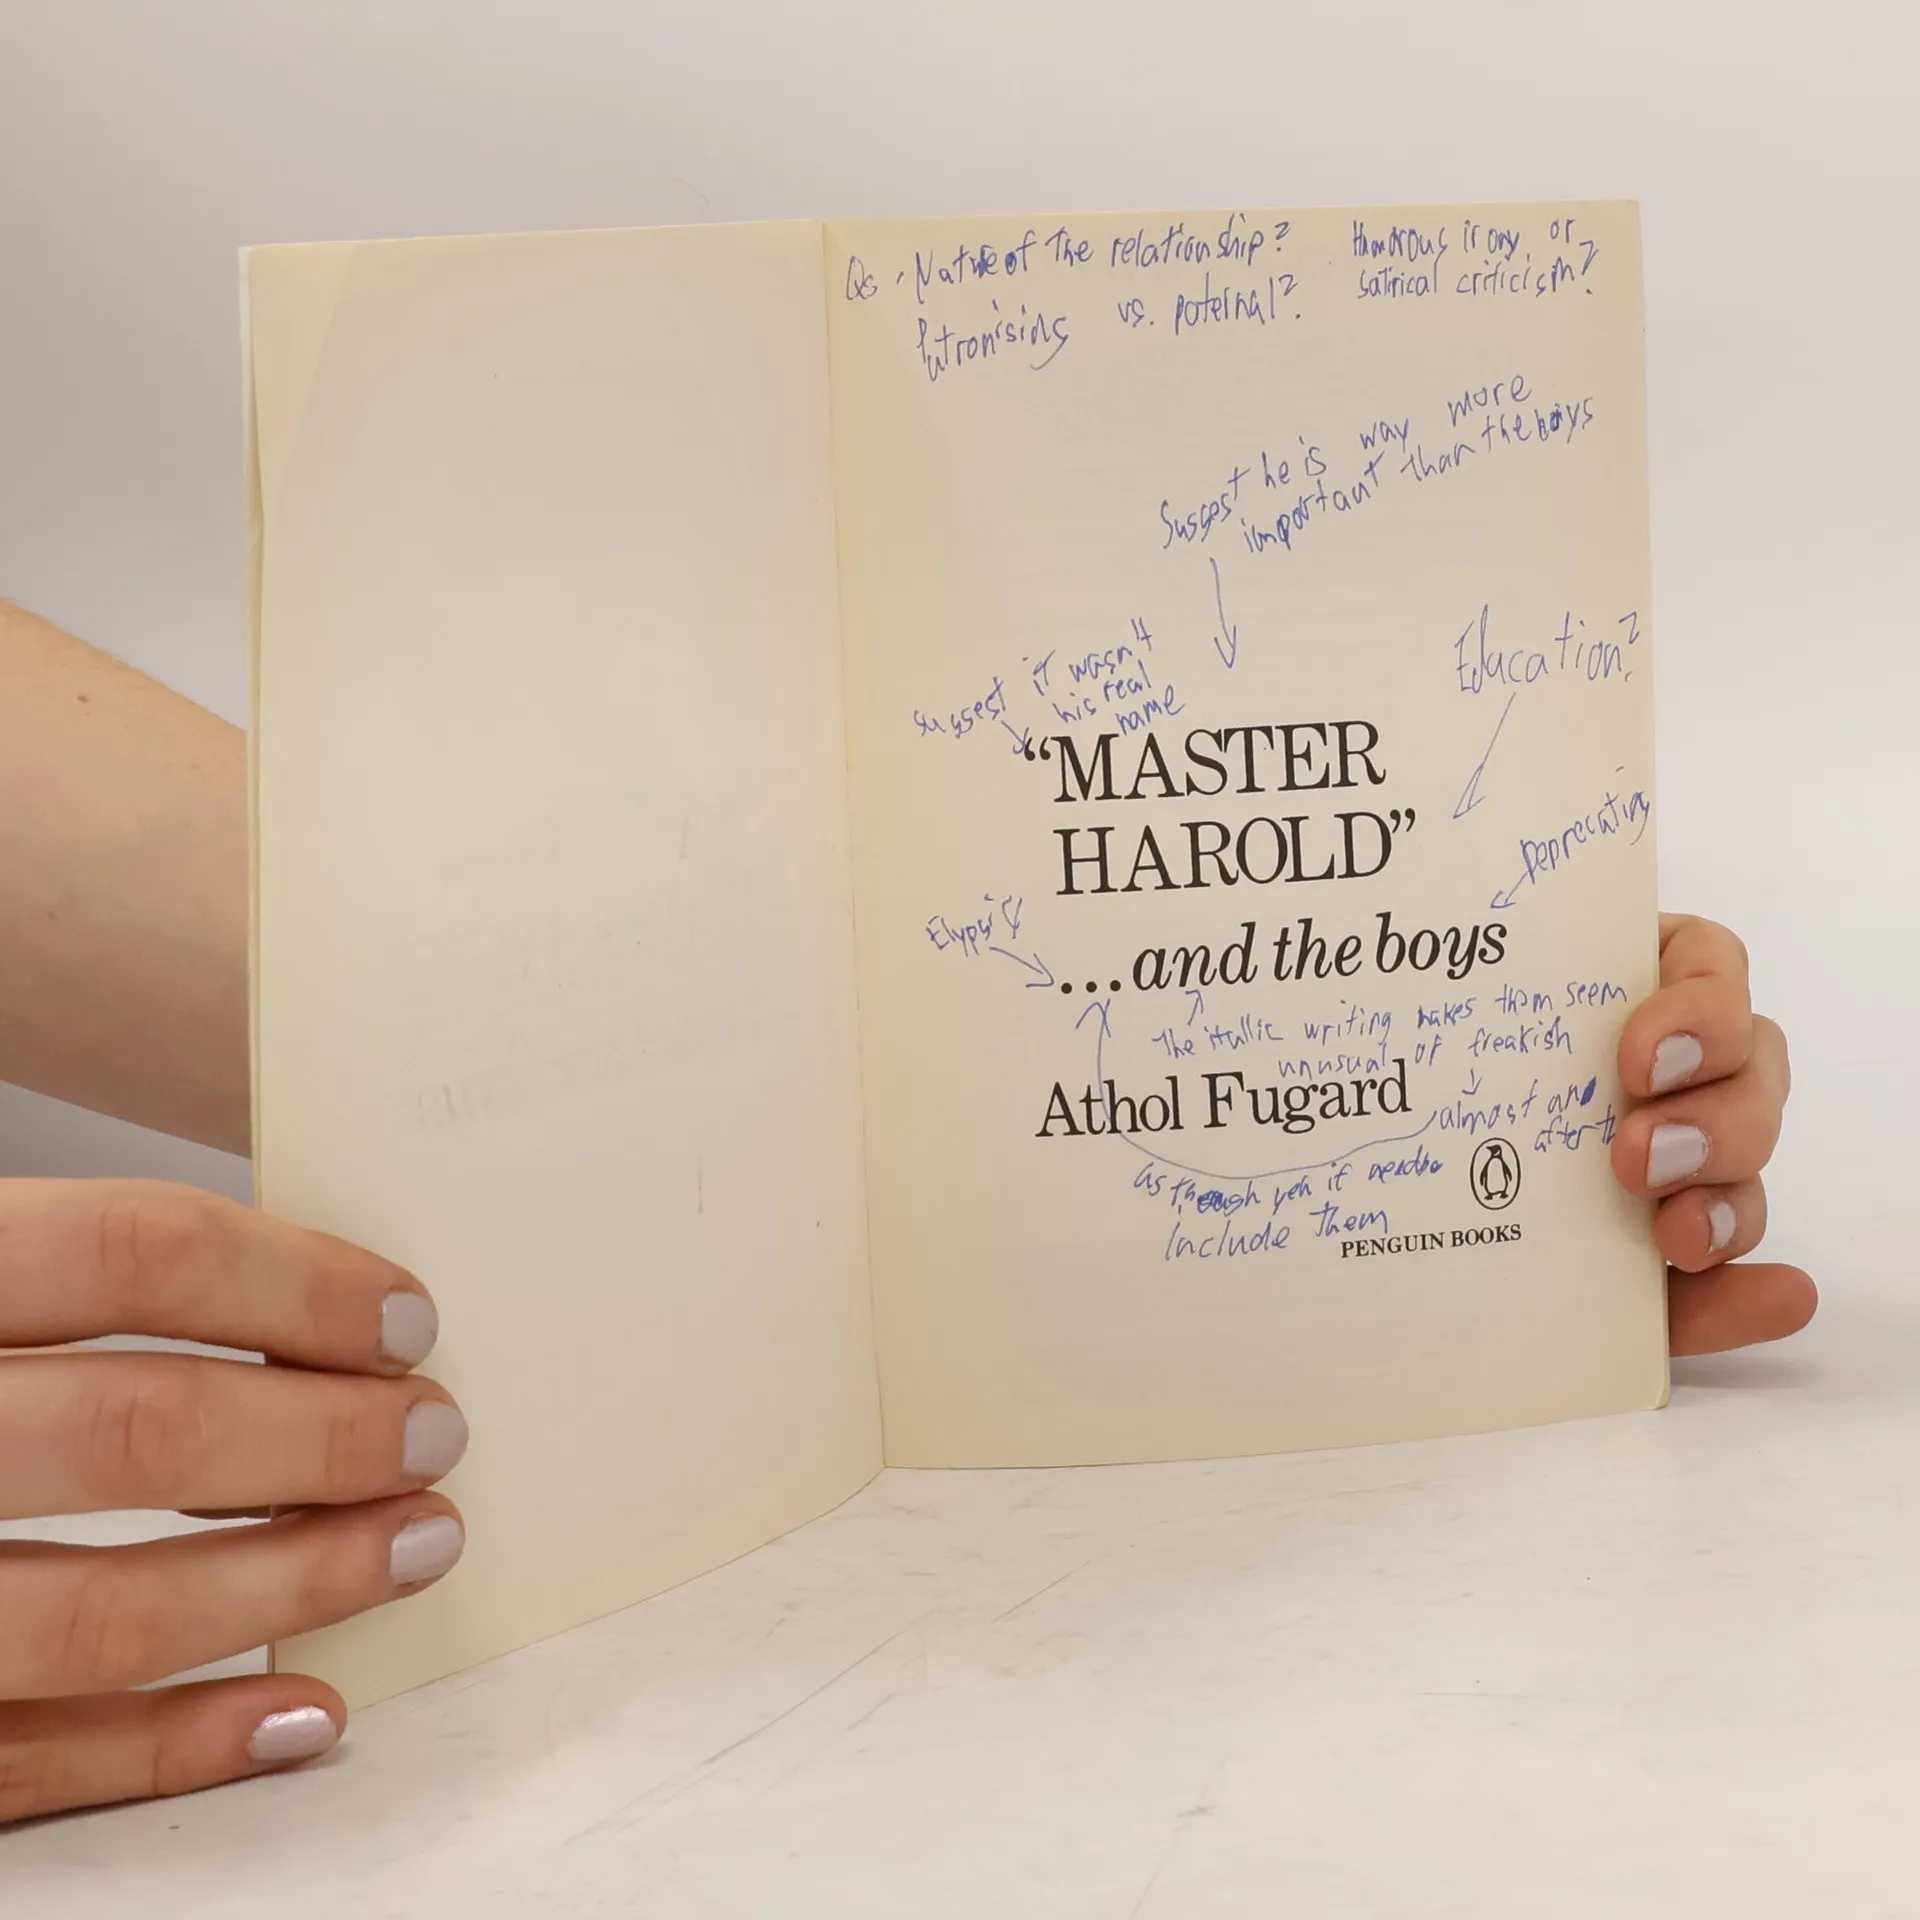 Qs · Nature of the relationship?
Patronising vs. paternal?
Humorous irony or
satirical criticism?
Suggest he is way more
important than the boys
Suggest it wasn't
his real
name
Education?
"MASTER
HAROLD"
Deprecating
Elypsis
...and the boys
The itallic writing makes them seem
unusual or freakish
Athol Fugard
almost and
after th
as though yeh if needbe
include them
PENGUIN BOOKS